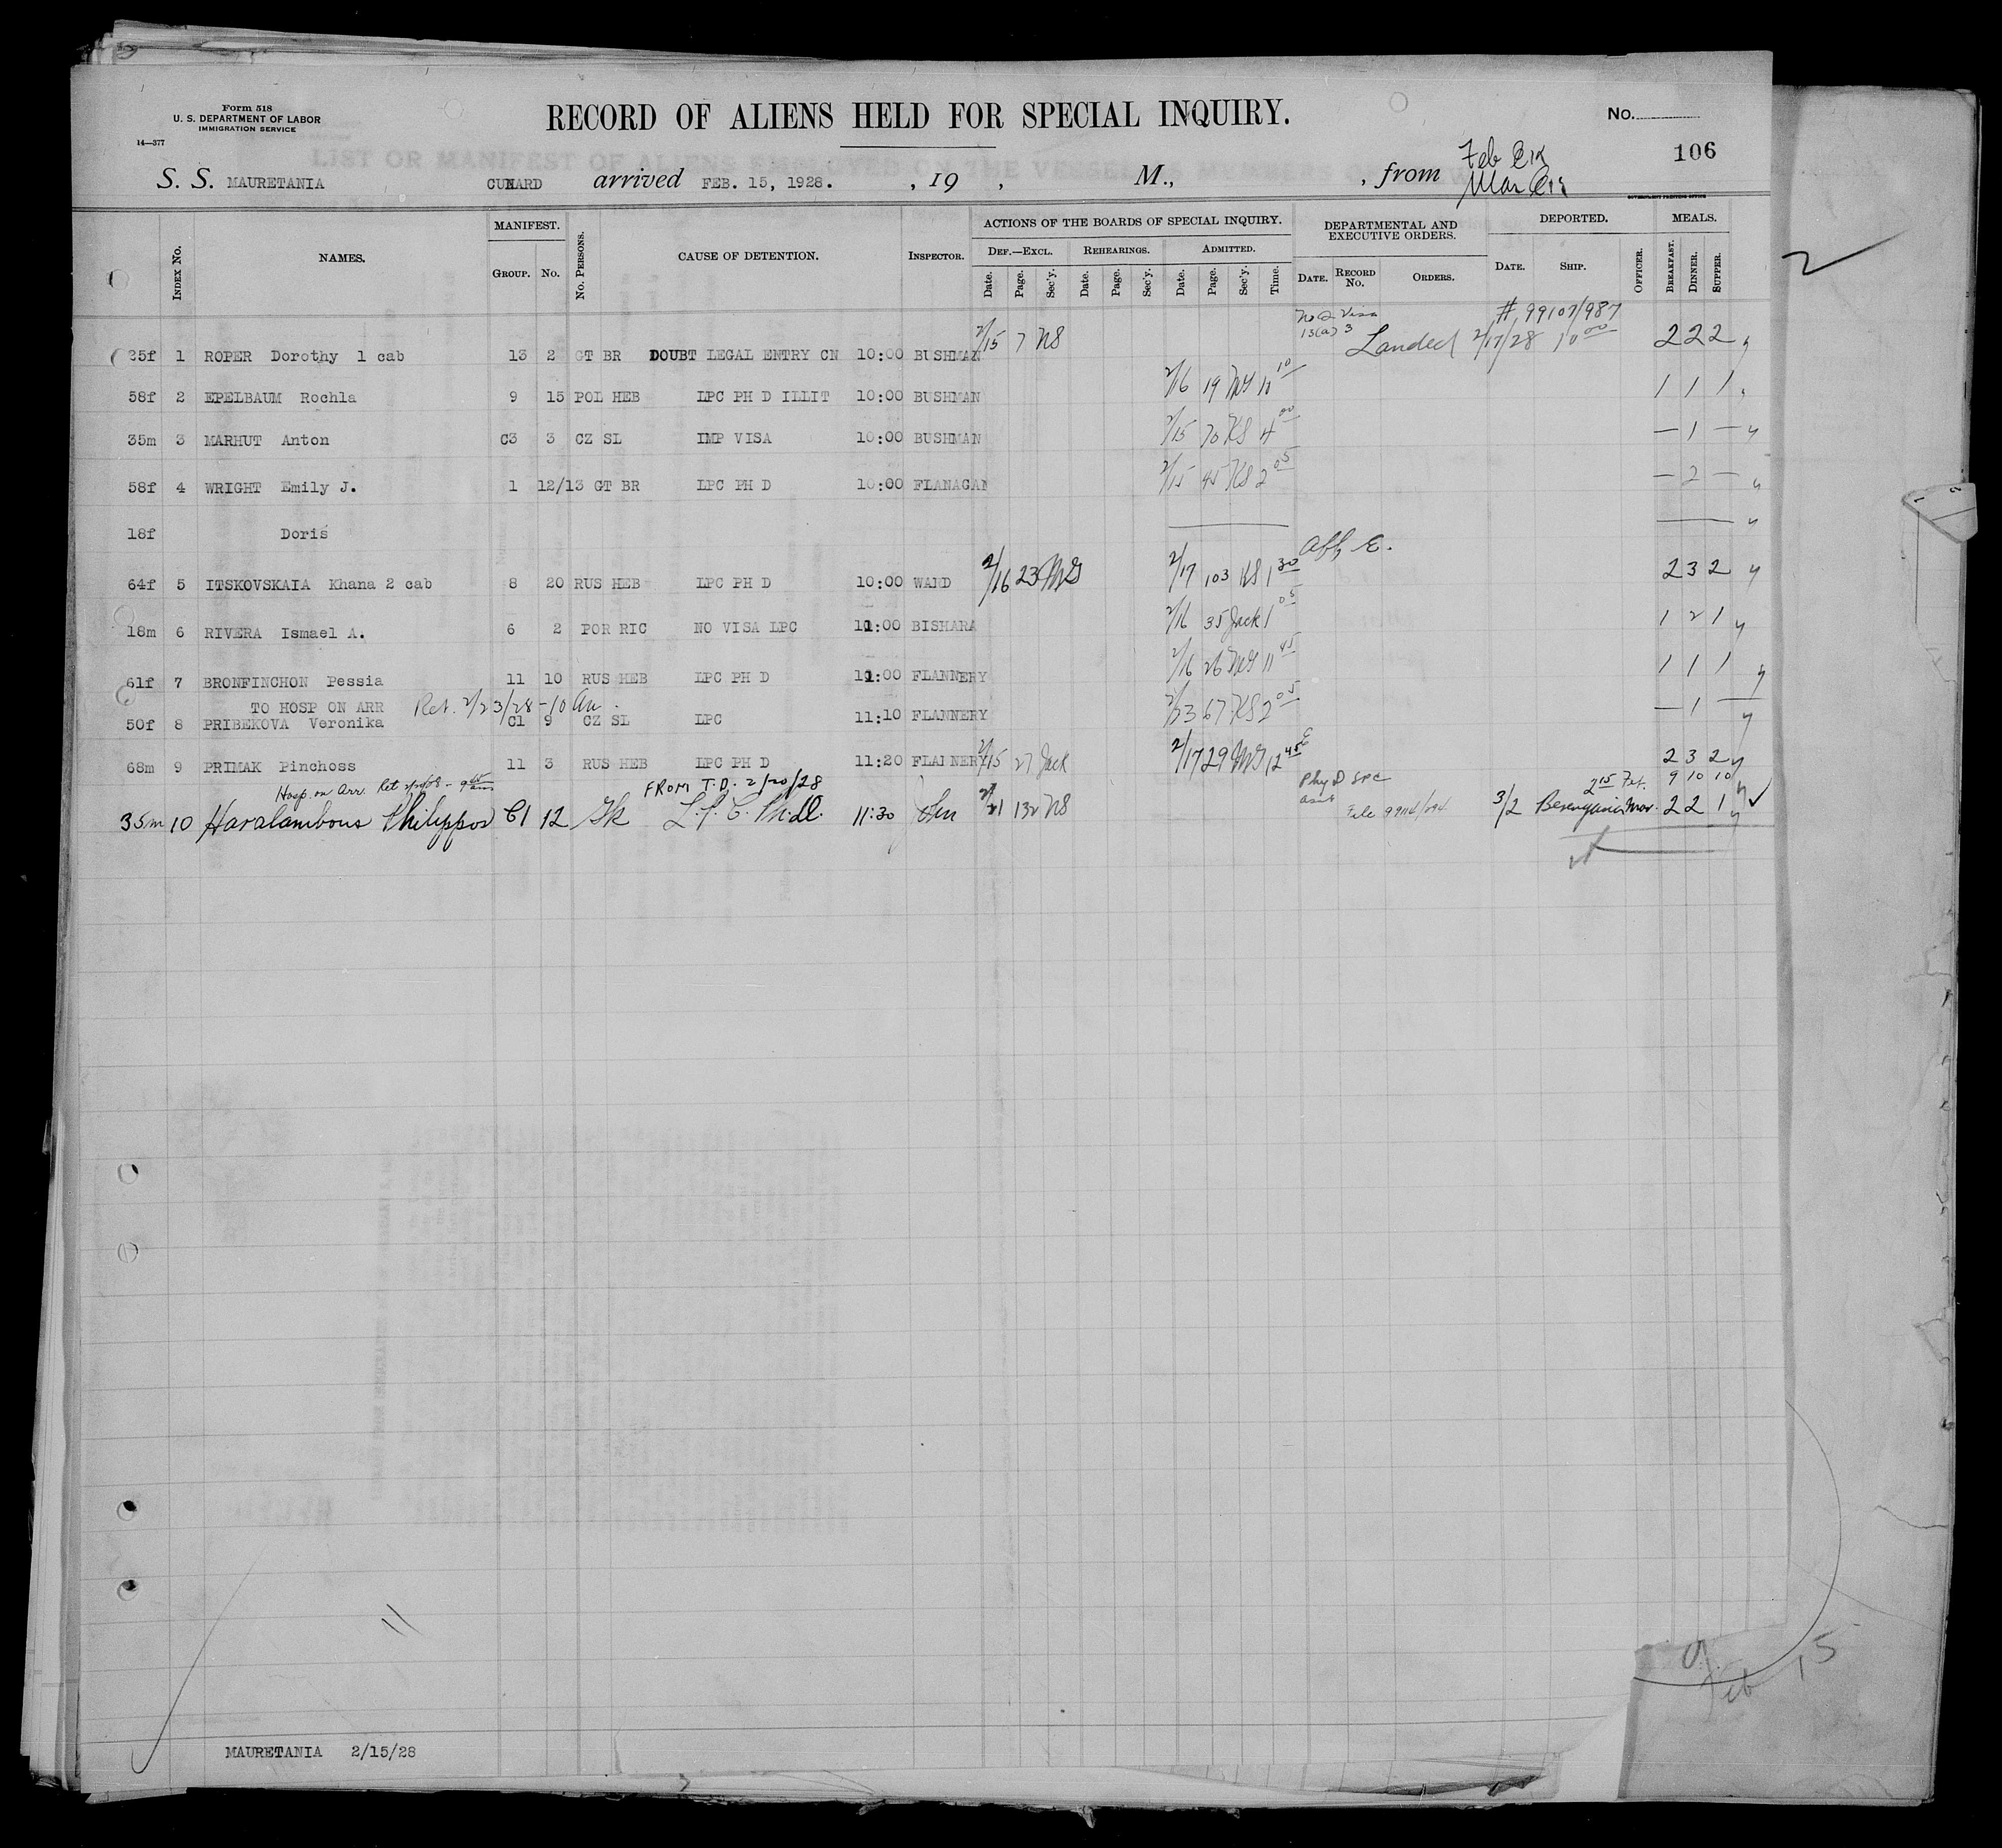 Form 518
U. S. DEPARTMENT OF LABOR
IMMIGRATION SERVICE
14—377
RECORD OF ALIENS HELD FOR SPECIAL INQUIRY.
No.
106
S. S. MAURETANIA CUNARD arrived FEB. 15, 1928. , 19 , M., , from
INDEX No. NAMES. MANIFEST. GROUP. No. No. PERSONS. CAUSE OF DETENTION. INSPECTOR. ACTIONS OF THE BOARDS OF SPECIAL INQUIRY. DEF.—EXCL. Date. Page. Sec'y. REHEARINGS. Date. Page. Sec'y. ADMITTED. Date. Page. Sec'y. Time. DEPARTMENTAL AND EXECUTIVE ORDERS. DATE. RECORD No. ORDERS. DEPORTED. DATE. SHIP. OFFICER. MEALS. BREAKFAST. DINNER. SUPPER.
# 99107/987
25f 1 ROPER Dorothy 1 cab 13 2 GT BR DOUBT LEGAL ENTRY CN 10:00 BUSHMAN 2/15 7 NS Landed 2/17/28 10 00 2 2 2
58f 2 EPELBAUM Rochla 9 15 POL HEB LPC PH D ILLIT 10:00 BUSHMAN 2/16 19 11 10 1 1 1
35m 3 MARHUT Anton C3 3 CZ SL IMP VISA 10:00 BUSHMAN 2/15 70 KS 4 00 — 1 —
58f 4 WRIGHT Emily J. 1 12/13 GT BR LPC PH D 10:00 FLANAGAN 2/15 45 KS 2 05 — 2 —
18f Doris
64f 5 ITSKOVSKAIA Khana 2 cab 8 20 RUS HEB LPC PH D 10:00 WARD 2/16 23 2/17 103 KS 1 30 2 3 2
18m 6 RIVERA Ismael A. 6 2 POR RIC NO VISA LPC 11:00 BISHARA 2/16 35 Jack 1 05 1 2 1
61f 7 BRONFINCHON Pessia 11 10 RUS HEB LPC PH D 11:00 FLANNERY 2/16 26 11 45 1 1 1
TO HOSP ON ARR Ret. 2/23/28 - 10 am.
50f 8 PRIBEKOVA Veronika C1 9 CZ SL LPC 11:10 FLANNERY 2/23 67 KS 2 05 — 1 —
68m 9 PRIMAK Pinchoss 11 3 RUS HEB LPC PH D 11:20 FLANNERY 2/15 27 Jack 2/17 29 12 45 2 3 2
Hosp. on Arr. FROM T.D. 2/20/28 9 10 10
35m 10 Haralambous Philippos C1 12 Gk L.P.C. Ph.D. 11:30 2/21 132 NS 3/2 Berengaria 2 2 1
Feb 15
MAURETANIA 2/15/28